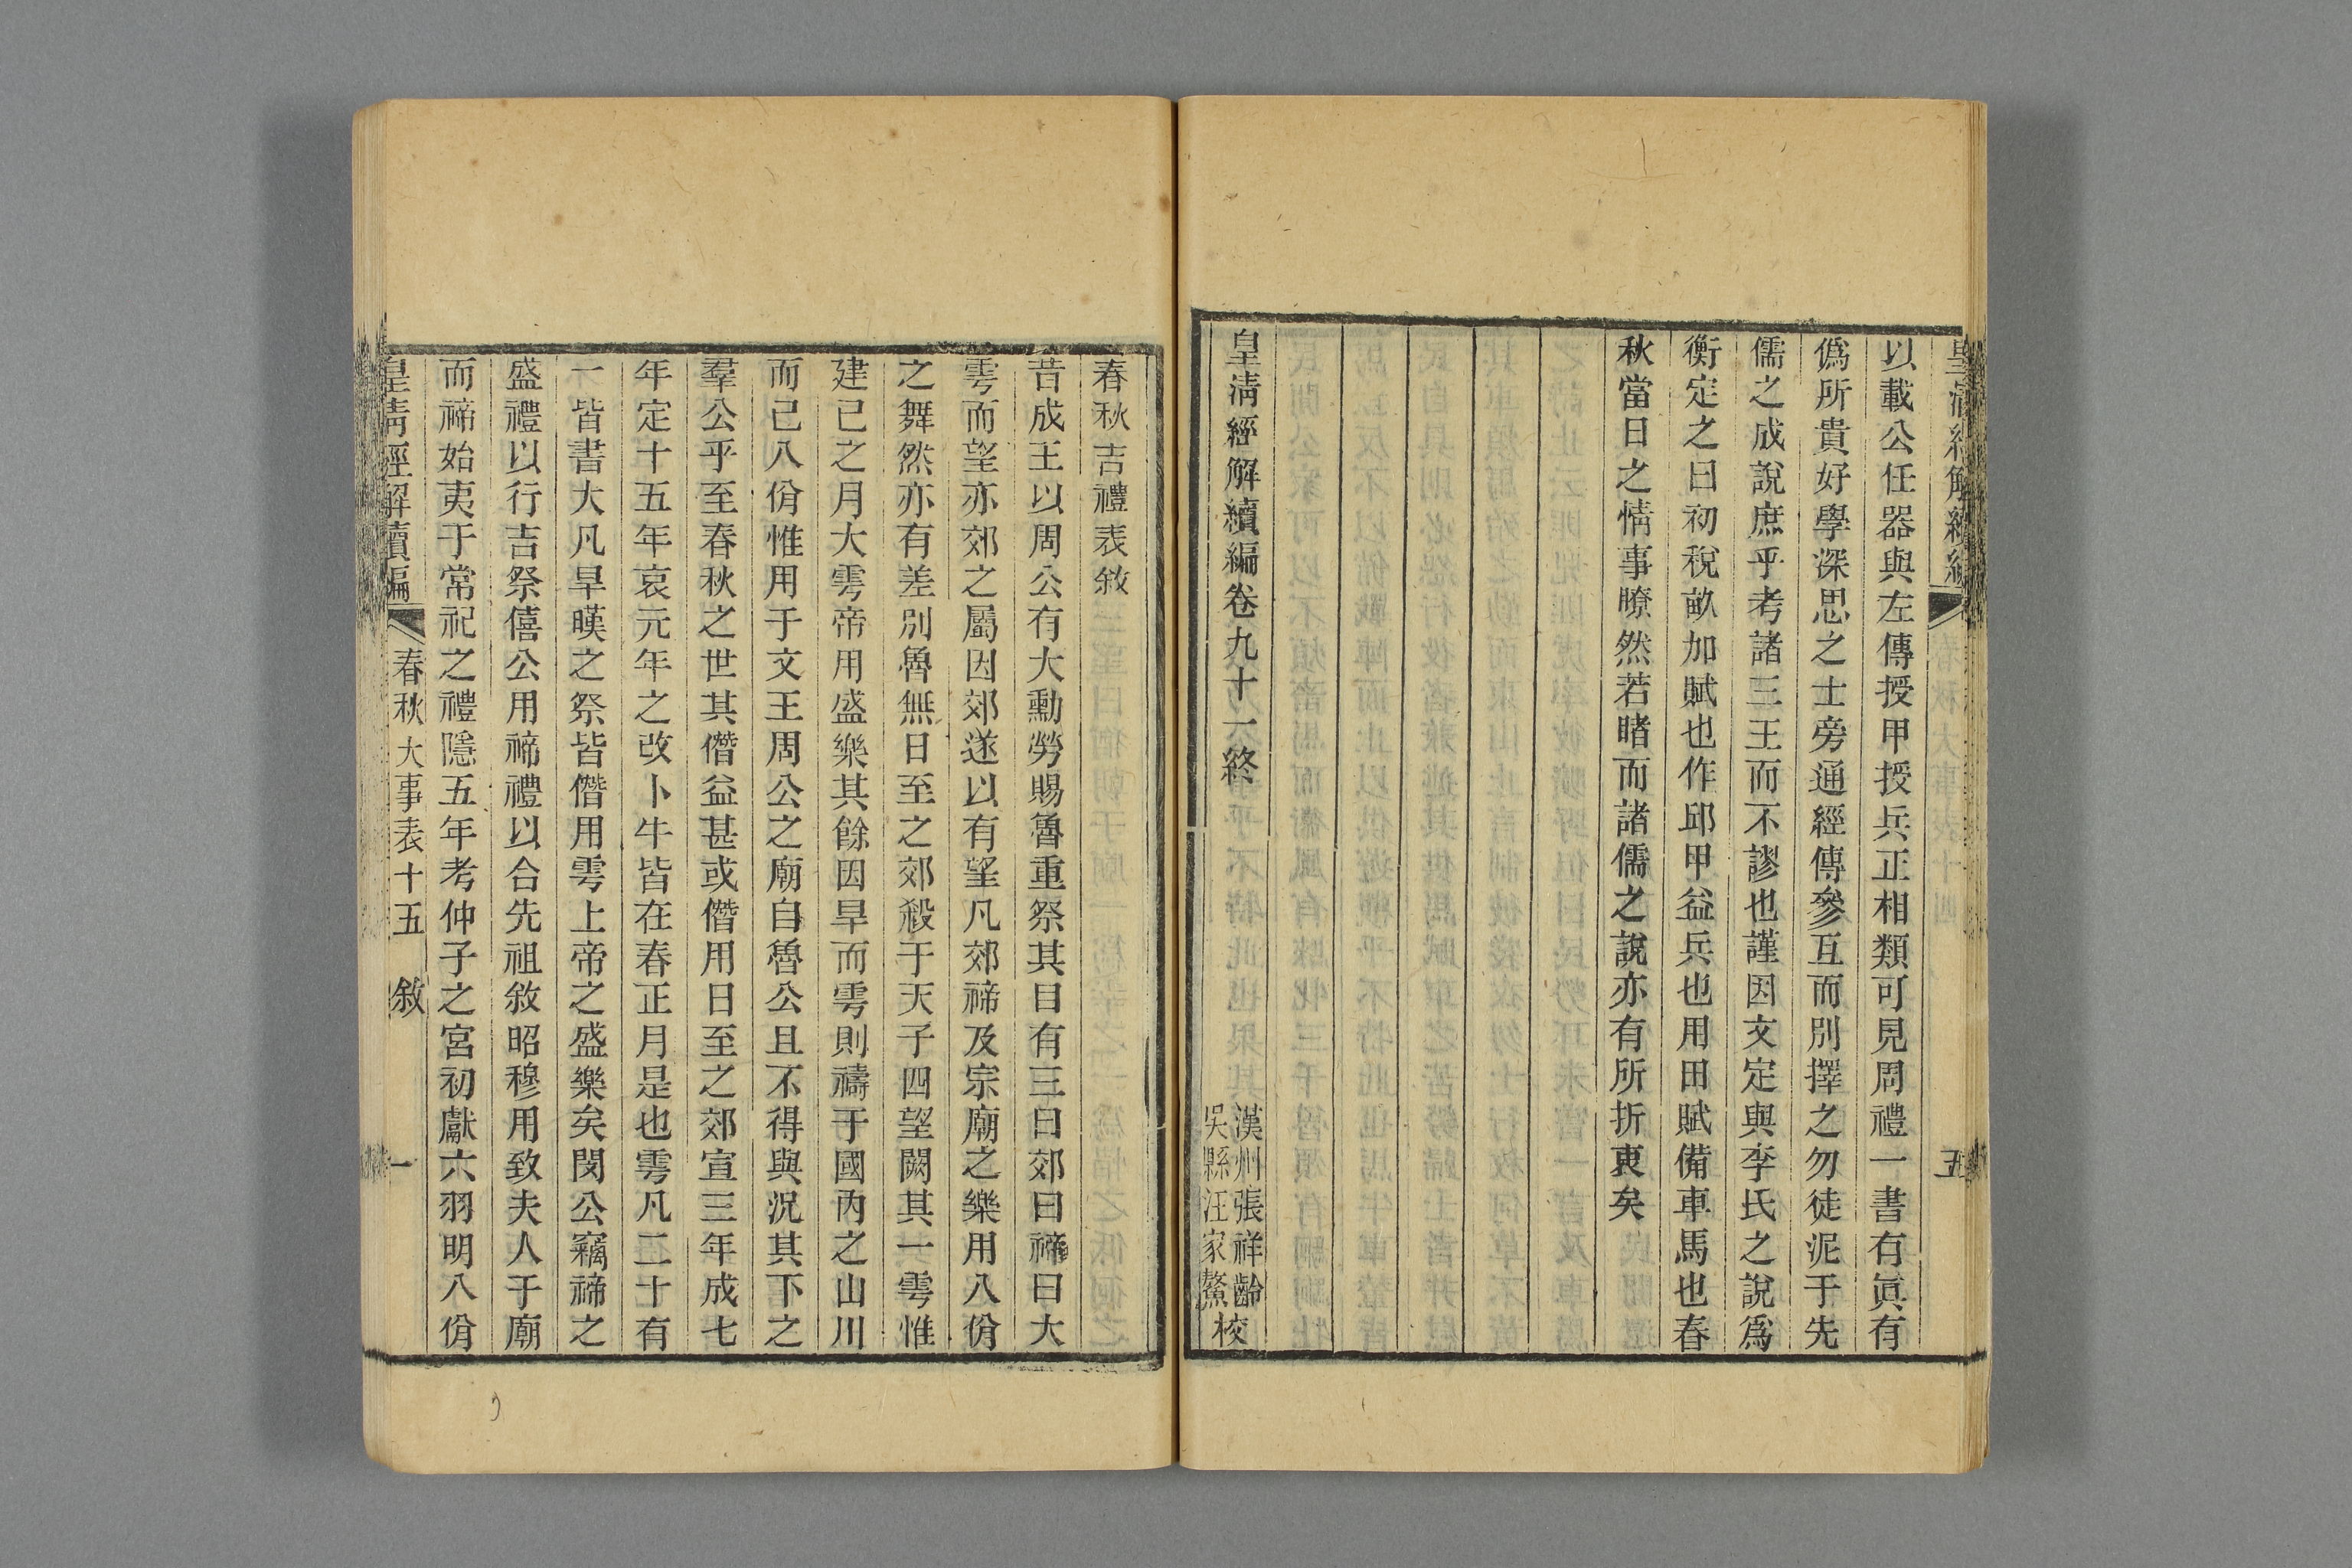 皇清經解續編
五
以載公任器與左傳授甲授兵正相類可見周禮一書有眞有
僞所貴好學深思之士旁通經傳參互而別擇之勿徒泥于先
儒之成說庶乎考諸三王而不謬也謹因文定與李氏之說爲
衡定之曰初稅畝加賦也作邱甲益兵也用田賦備車馬也春
秋當日之情事瞭然若睹而諸儒之說亦有所折衷矣
皇淸經解續編卷九十一終
漢州張祥齡
吳縣汪家鰲
校
春秋吉禮表敘
昔成王以周公有大勳勞賜魯重祭其目有三曰郊曰禘曰大
雩而望亦郊之屬因郊遂以有望凡郊禘及宗廟之樂用八佾
之舞然亦有差別魯無日至之郊殺于天子四望闕其一雩惟
建巳之月大雩帝用盛樂其餘因旱而雩則禱于國內之山川
而已八佾惟用于文王周公之廟自魯公且不得與況其下之
羣公乎至春秋之世其僭益甚或僭用日至之郊宣三年成七
年定十五年哀元年之改卜牛皆在春正月是也雩凡二十有
一皆書大凡旱暵之祭皆僭用雩上帝之盛樂矣閔公竊禘之
盛禮以行吉祭僖公用禘禮以合先祖敘昭穆用致夫人于廟
而禘始夷于常祀之禮隱五年考仲子之宮初獻六羽明八佾
皇清經解續編
春秋大事表十五 敘
一